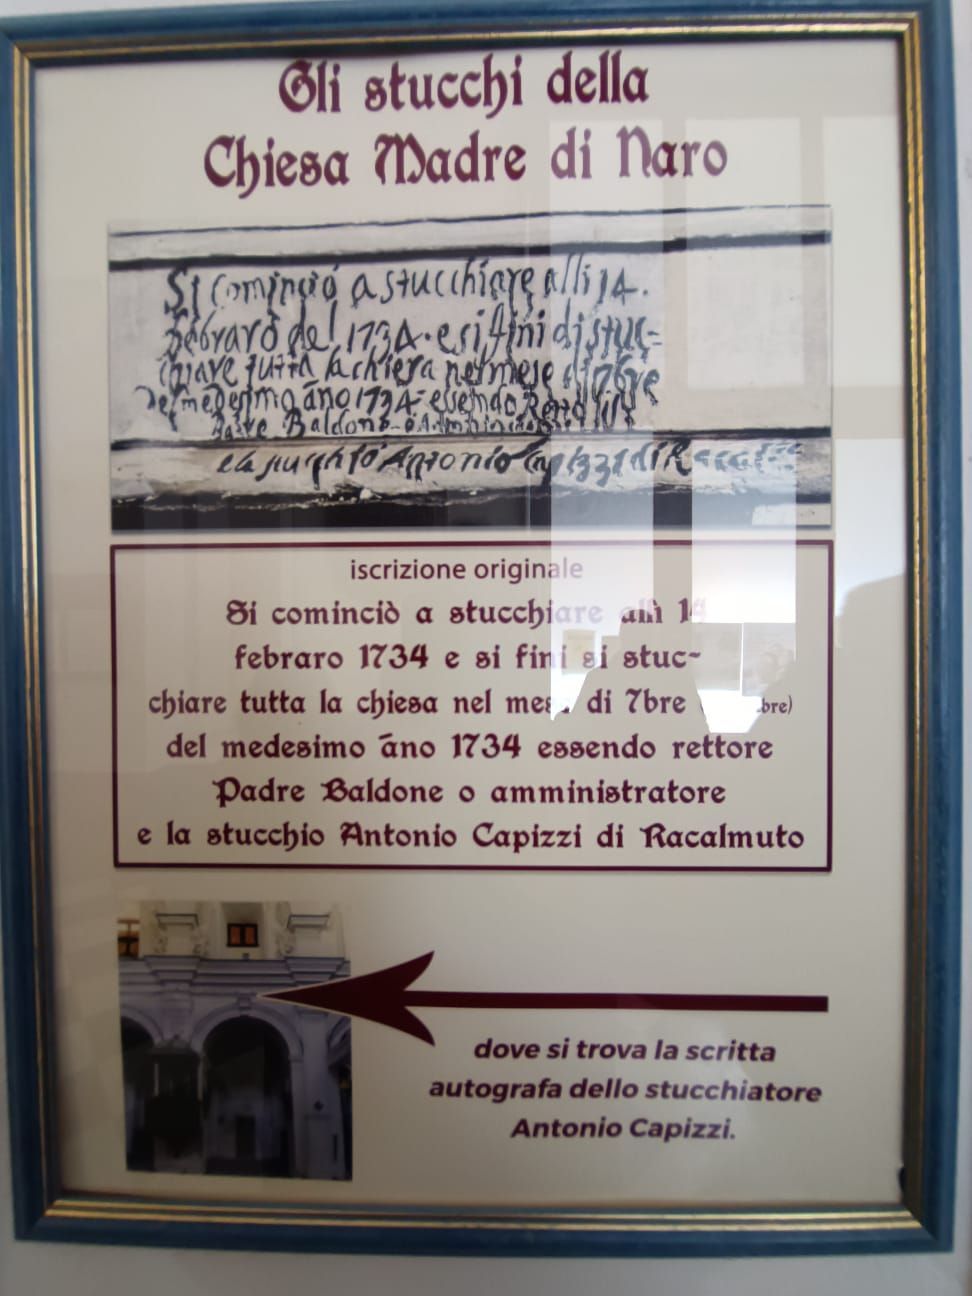 Gli stucchi della
Chiesa Madre di Naro
Si cominciò a stucchiare alli 14.
febraro del 1734. e si finì di stuc-
chiare tutta la chiesa nel mese di 7bre
del medesimo āno 1734 essendo
Baldone
e la stucchiò Antonio Capizzi di
iscrizione originale
Si cominciò a stucchiare alli 14
febraro 1734 e si fini si stuc~
chiare tutta la chiesa nel mese di 7bre
del medesimo āno 1734 essendo rettore
Padre Baldone o amministratore
e la stucchio Antonio Capizzi di Racalmuto
dove si trova la scritta
autografa dello stucchiatore
Antonio Capizzi.